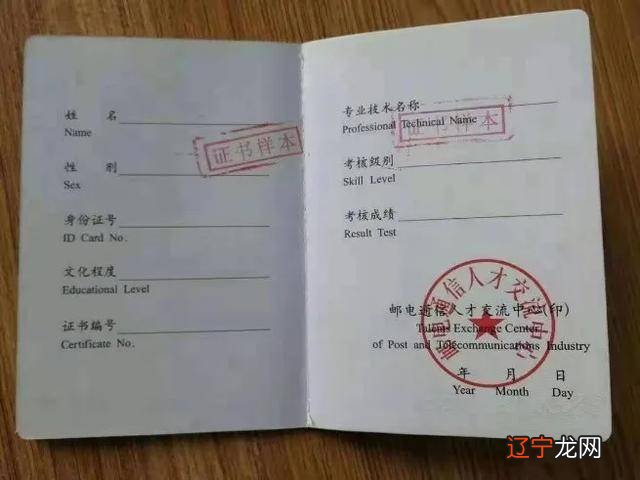 姓 名
Name
性 别
Sex
身份证号
ID Card No.
文化程度
Educational Level
证书编号
Certificate No.
证书样本
专业技术名称
Professional Technical Name
证书样本
考核级别
Skill Level
考核成绩
Result Test
邮电通信人才交流中心(印)
Talents Exchange Center
of Post and Telecommunications Industry
年 月 日
Year Month Day
邮电通信人才交流中心
辽宁龙网